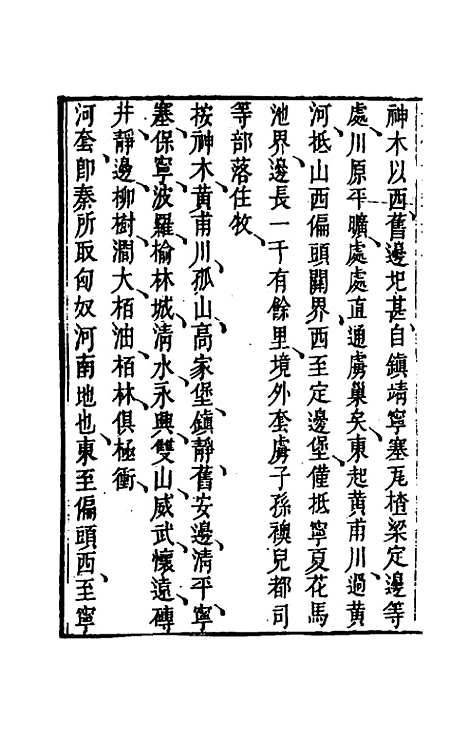 神木以西舊邊圯甚自鎮靖寧塞瓦楂梁定邊等
處川原平曠處處直通虜巢矣東起黄甫川過黄
河抵山西偏頭關界西至定邊堡僅抵寧夏花馬
池界邊長一千有餘里境外套虜子孫襖兒都司
等部落住牧
按神木黄甫川孤山高家堡鎮靜舊安邊清平寧
塞保寧波羅榆林城清水永興雙山威武懷遠磚
井靜邊柳樹澗大栢油栢林俱極衝
河套即秦所取匈奴河南地也東至偏頭西至寧